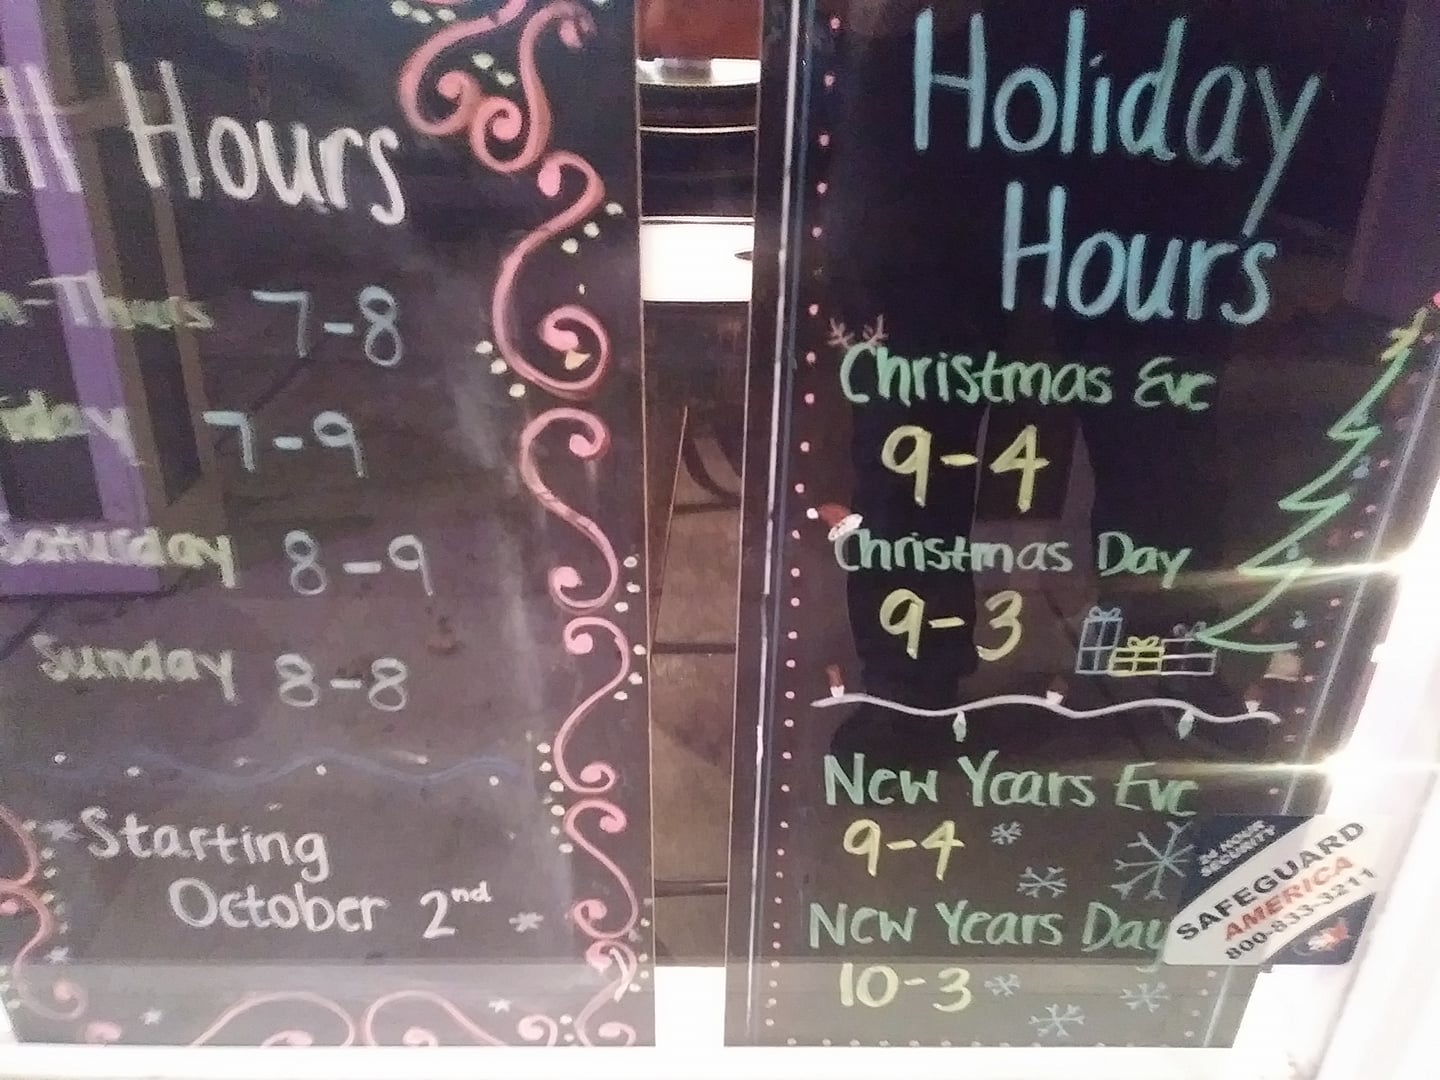 ll Hours
n-Thurs 7-8
iday 7-9
Saturday 8-9
Sunday 8-8
Starting
October 2nd
Holiday
Hours
Christmas Eve
9-4
Christmas Day
9-3
New Years Eve
9-4
New Years Day
10-3
24 HOUR
SECURITY
SAFEGUARD
AMERICA
800-833-3211